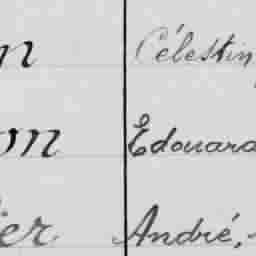 n Célestin
on Edouard
ier André,